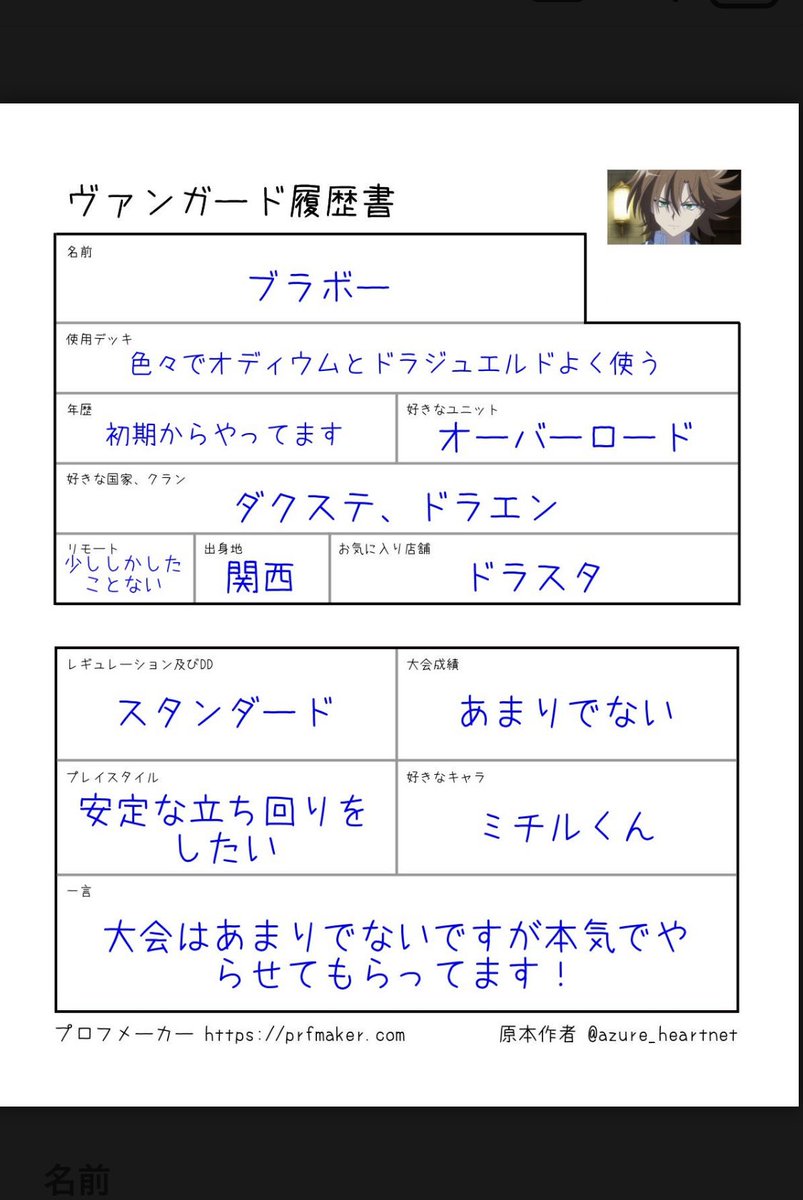 ヴァンガード履歴書
名前
ブラボー
使用デッキ
色々でオディウムとドラジュエルドよく使う
年歴
初期からやってます
好きなユニット
オーバーロード
好きな国家、クラン
ダクステ、ドラエン
リモート
少ししかした
ことない
出身地
関西
お気に入り店舗
ドラスタ
レギュレーション及びDD
スタンダード
大会成績
あまりでない
プレイスタイル
安定な立ち回りを
したい
好きなキャラ
ミチルくん
一言
大会はあまりでないですが本気でや
らせてもらってます！
プロフメーカー https://prfmaker.com
原本作者 @azure_heartnet
名前